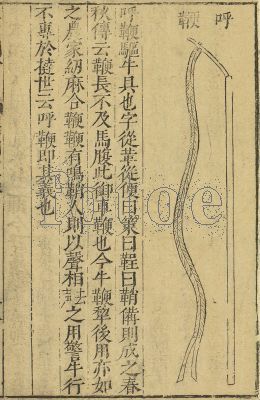 呼鞭
呼鞭驅牛具也字從革從便曰策曰鞓曰鞘備則成之春
秋傳云鞭長不及馬腹此御車鞭也今牛鞭犂後用亦如
之農家紉麻合鞭鞭有鳴鞘人則以聲相去声之用警牛行
不專於撻世云呼鞭即其義也